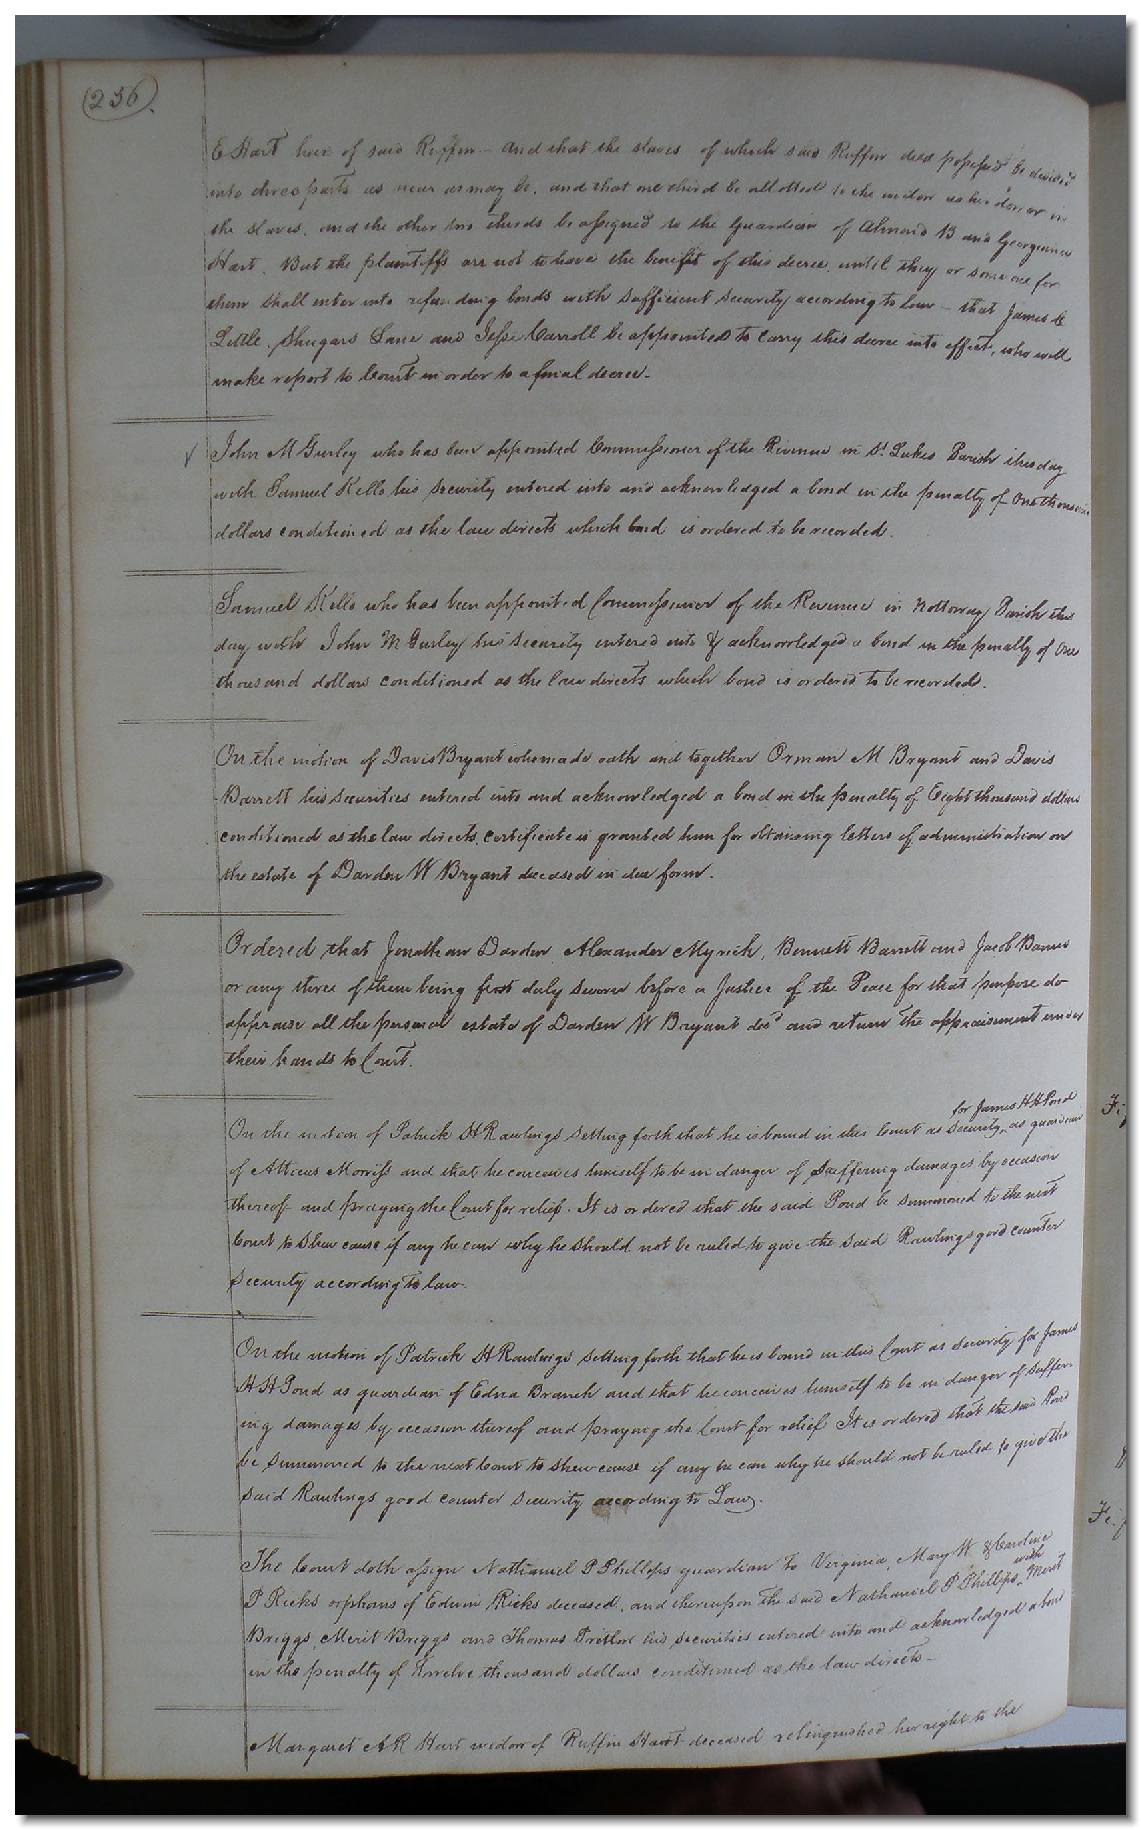 (256).
E Hart heir of said Ruffin – and that the slaves of which said Ruffin died possessed be divided
into three parts as near as may be, and that one third be allotted to the widow as her dower in
the slaves, and the other two thirds be assigned to the Guardian of Almond B and Georgeanna
Hart. But the plaintiffs are not to have the benefit of this decree until they or some one for
them shall enter into refunding bonds with sufficient security according to law – that James C
Little, Shugars Lane and Jesse Carroll be appointed to carry this decree into effect, who will
make report to Court in order to a final decree –
John M Gurley who has been appointed Commissioner of the Revenue in St. Lukes Parish this day
with Samuel Kello his security entered into and acknowledged a bond in the penalty of One thousand
dollars conditioned as the law directs which bond is ordered to be recorded.
Samuel Kello who has been appointed Commissioner of the Revenue in Nottoway Parish this
day with John M Gurley his security entered into & acknowledged a bond in the penalty of One
thousand dollars conditioned as the law directs which bond is ordered to be recorded.
On the motion of Davis Bryant who made oath and together Orman M Bryant and Davis
Barrett his securities entered into and acknowledged a bond in the penalty of Eight thousand dollars
conditioned as the law directs, certificate is granted him for obtaining letters of administration on
the estate of Darden W Bryant deceased in due form.
Ordered that Jonathan Darden, Alexander Myrick, Bennett Barrett and Jacob Barnes
or any three of them being first duly sworn before a Justice of the Peace for that purpose do
appraise all the personal estate of Darden W Bryant decd and return the appraisement under
their hands to Court.
for James H H Pond
On the motion of Patrick H Rawlings setting forth that he is bound in this Court as security, as guardian
of Atticus Morriss and that he conceives himself to be in danger of suffering damages by occasion
thereof and praying the Court for relief. It is ordered that the said Pond be summoned to the next
Court to shew cause if any he can why he should not be ruled to give the said Rawlings good counter
security according to law.
On the motion of Patrick H Rawlings setting forth that he is bound in this Court as security for James
H H Pond as guardian of Edna Branch and that he conceives himself to be in danger of suffer-
ing damages by occasion thereof and praying the Court for relief It is ordered that the said Pond
be summoned to the next Court to shew cause if any he can why he should not be ruled to give the
said Rawlings good counter security according to Law.
The Court doth assign Nathaniel P Phillips guardian to Virginia, Mary W & Caroline
with
P Ricks orphans of Edwin Ricks deceased, and thereupon the said Nathaniel P Phillips, Merit
Briggs, Merit Briggs and Thomas Pretlow his securities entered into and acknowledged a bond
in the penalty of Twelve thousand dollars conditioned as the law directs –
Margaret A R Hart widow of Ruffin Hart deceased relinquished her right to the